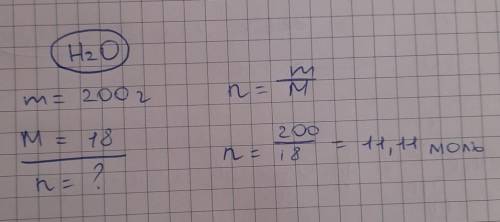 H2O
m = 200 г
M = 18
n = ?
n = m/M
n = 200/18 = 11,11 моль